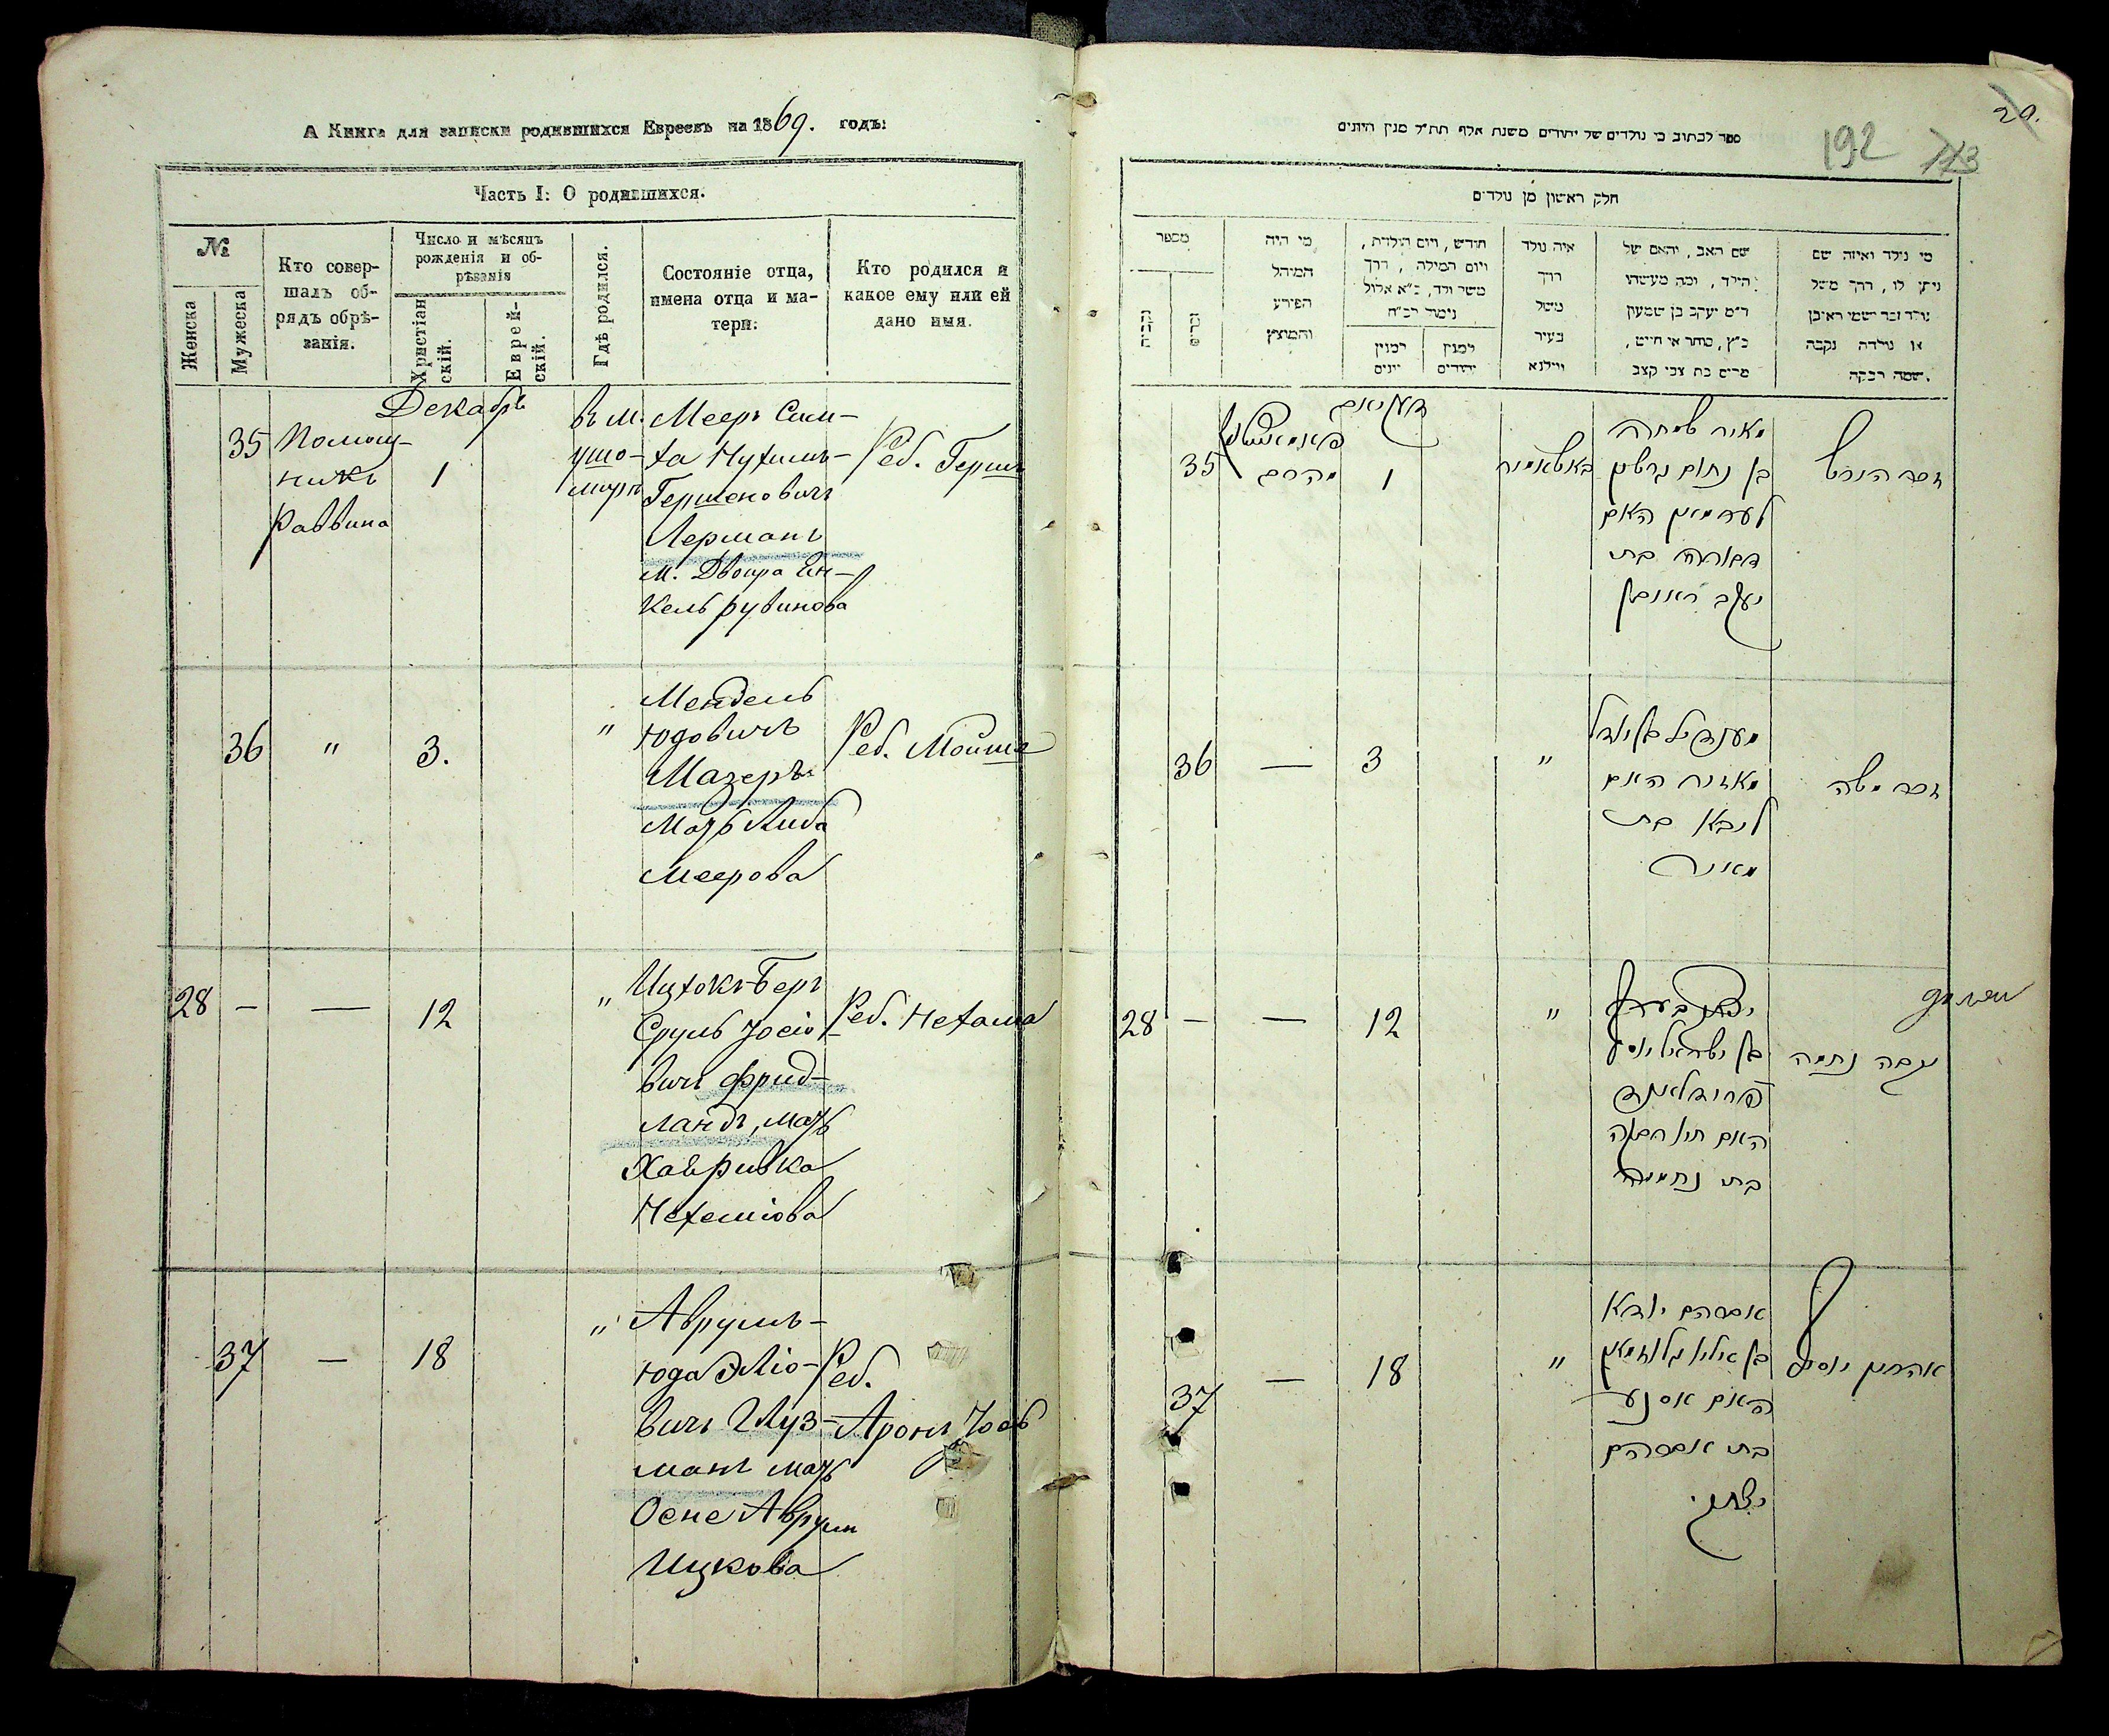 А Книга для записки родившихся Евреевъ на 1869. годъ:
Часть I: О родившихся.
№
Женска
Мужеска
Кто совер-
шалъ об-
рядъ обрѣ-
занія.
Число и мѣсяцъ
рожденія и об-
рѣзанія
Христіан
скій.
Еврей-
скій.
Гдѣ родился.
Состояніе отца,
имена отца и ма-
тери:
Кто родился и
какое ему или ей
дано имя.
Декабрь
35
Помощ-
никъ
Раввина
1
въ м.
Мееръ Сим-
ха Нухимъ-
Гершковичъ
Лерманъ
м. Двойра Ен-
кель рувинова
Реб. Гершъ
36
"
3.
"
Мендель
Юдовичъ
Мазеръ
Мать Либа
Меерова
Реб. Мойше
28
—
—
12
"
Ицхокъ-Беръ
Сруль Іосіо-
вичъ Фрид-
ландъ, мать
Хая Ривка
Нехеміова
Реб. Нехама
37
—
18
"
Аврумъ-
Юда Эліо-
вичъ Глуз-
манъ мать
Осне Аврум
Ицкова
Реб.
Аронъ Іосъ
29.
192
173
ספר לכתוב בו נולדים של יהודים משנת אלף תת"ל מנין היונים
חלק ראשון מן נולדים
מספר
מי היה
המוהל
הפורע
והמוצץ
חודש, ויום הולדת,
ויום המילה, דרך
משל ולד, כ"א אלול
נימול רב"ח
למנין
יונים
למנין
יהודים
איה נולד
דרך
משל
בעיר
ווילנא
שם האב, והאם של
הילד, ומה מעשהו
ר"מ יעקב בן שמעון
כ"ץ, סוחר או חייט,
מרים בת צבי קצב
מי נולד ואיזה שם
ניתן לו, דרך משל
נולד זכר ושמו ראובן
או נולדה נקבה
ושמה רבקה.
35
1
מאיר שמחה
בן נחום הערשק
לערמאן האם
דבורה בת
יעקב ראובן
זכר הערש
36
—
3
"
מענדיל בן יודל
מאזור האם
ליבא בת
מאיר
זכר משה
28
—
—
12
"
יצחק בער
בן ישראל יוסף
פרידלאנד
האם חי' רבקה
בת נחמיה
נקבה נחמה
37
—
18
"
אברהם יודא
בן אליו גלוזמאן
האם אסנע
בת אברהם
יצחק.
אהרון יוסף